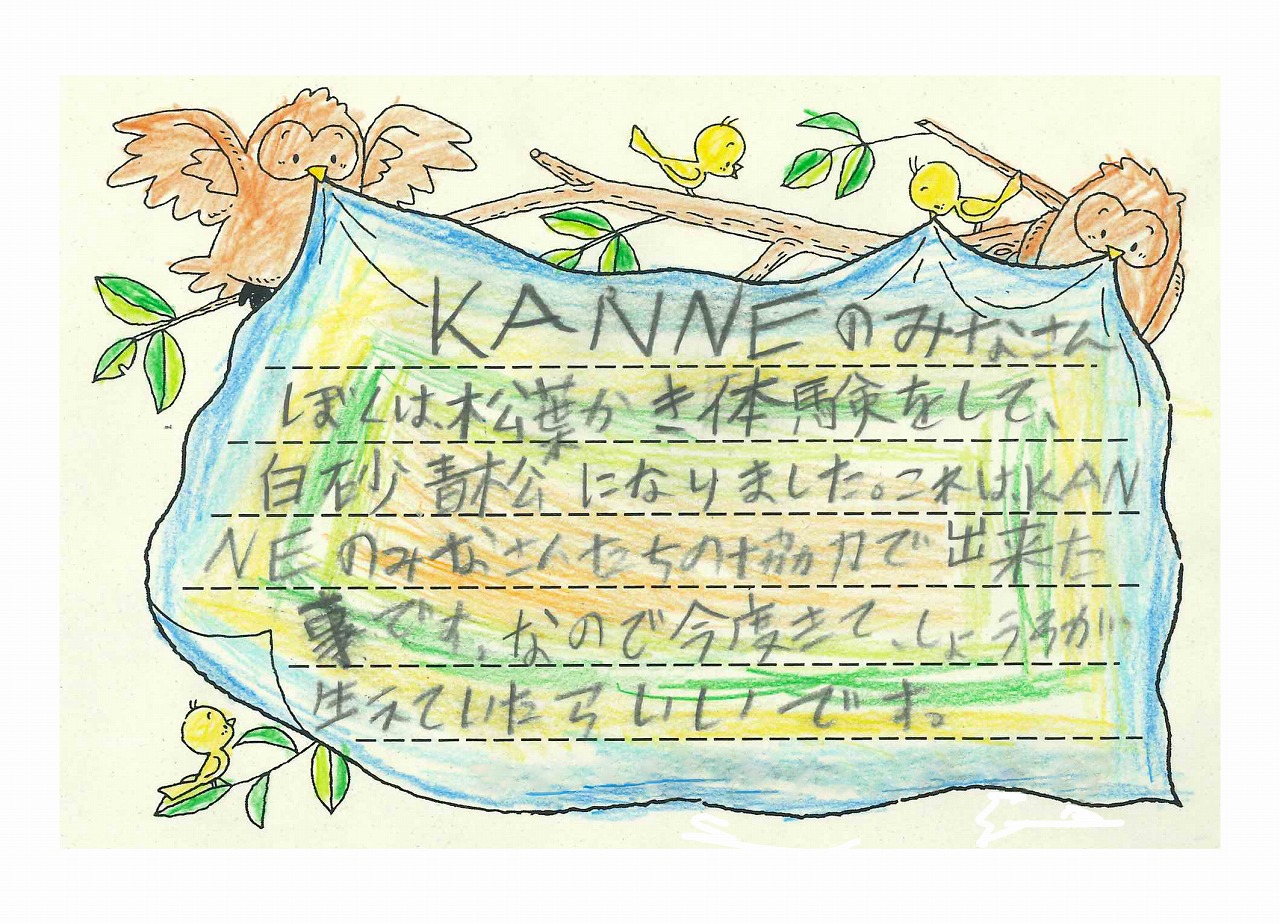 KANNEのみなさん
ぼくは、松葉かき体験をして、
白砂青松になりました。これはKAN
NEのみなさんたちの協力で出来た
事です。なので今度きて、しょうろが
生えていたらいいです。